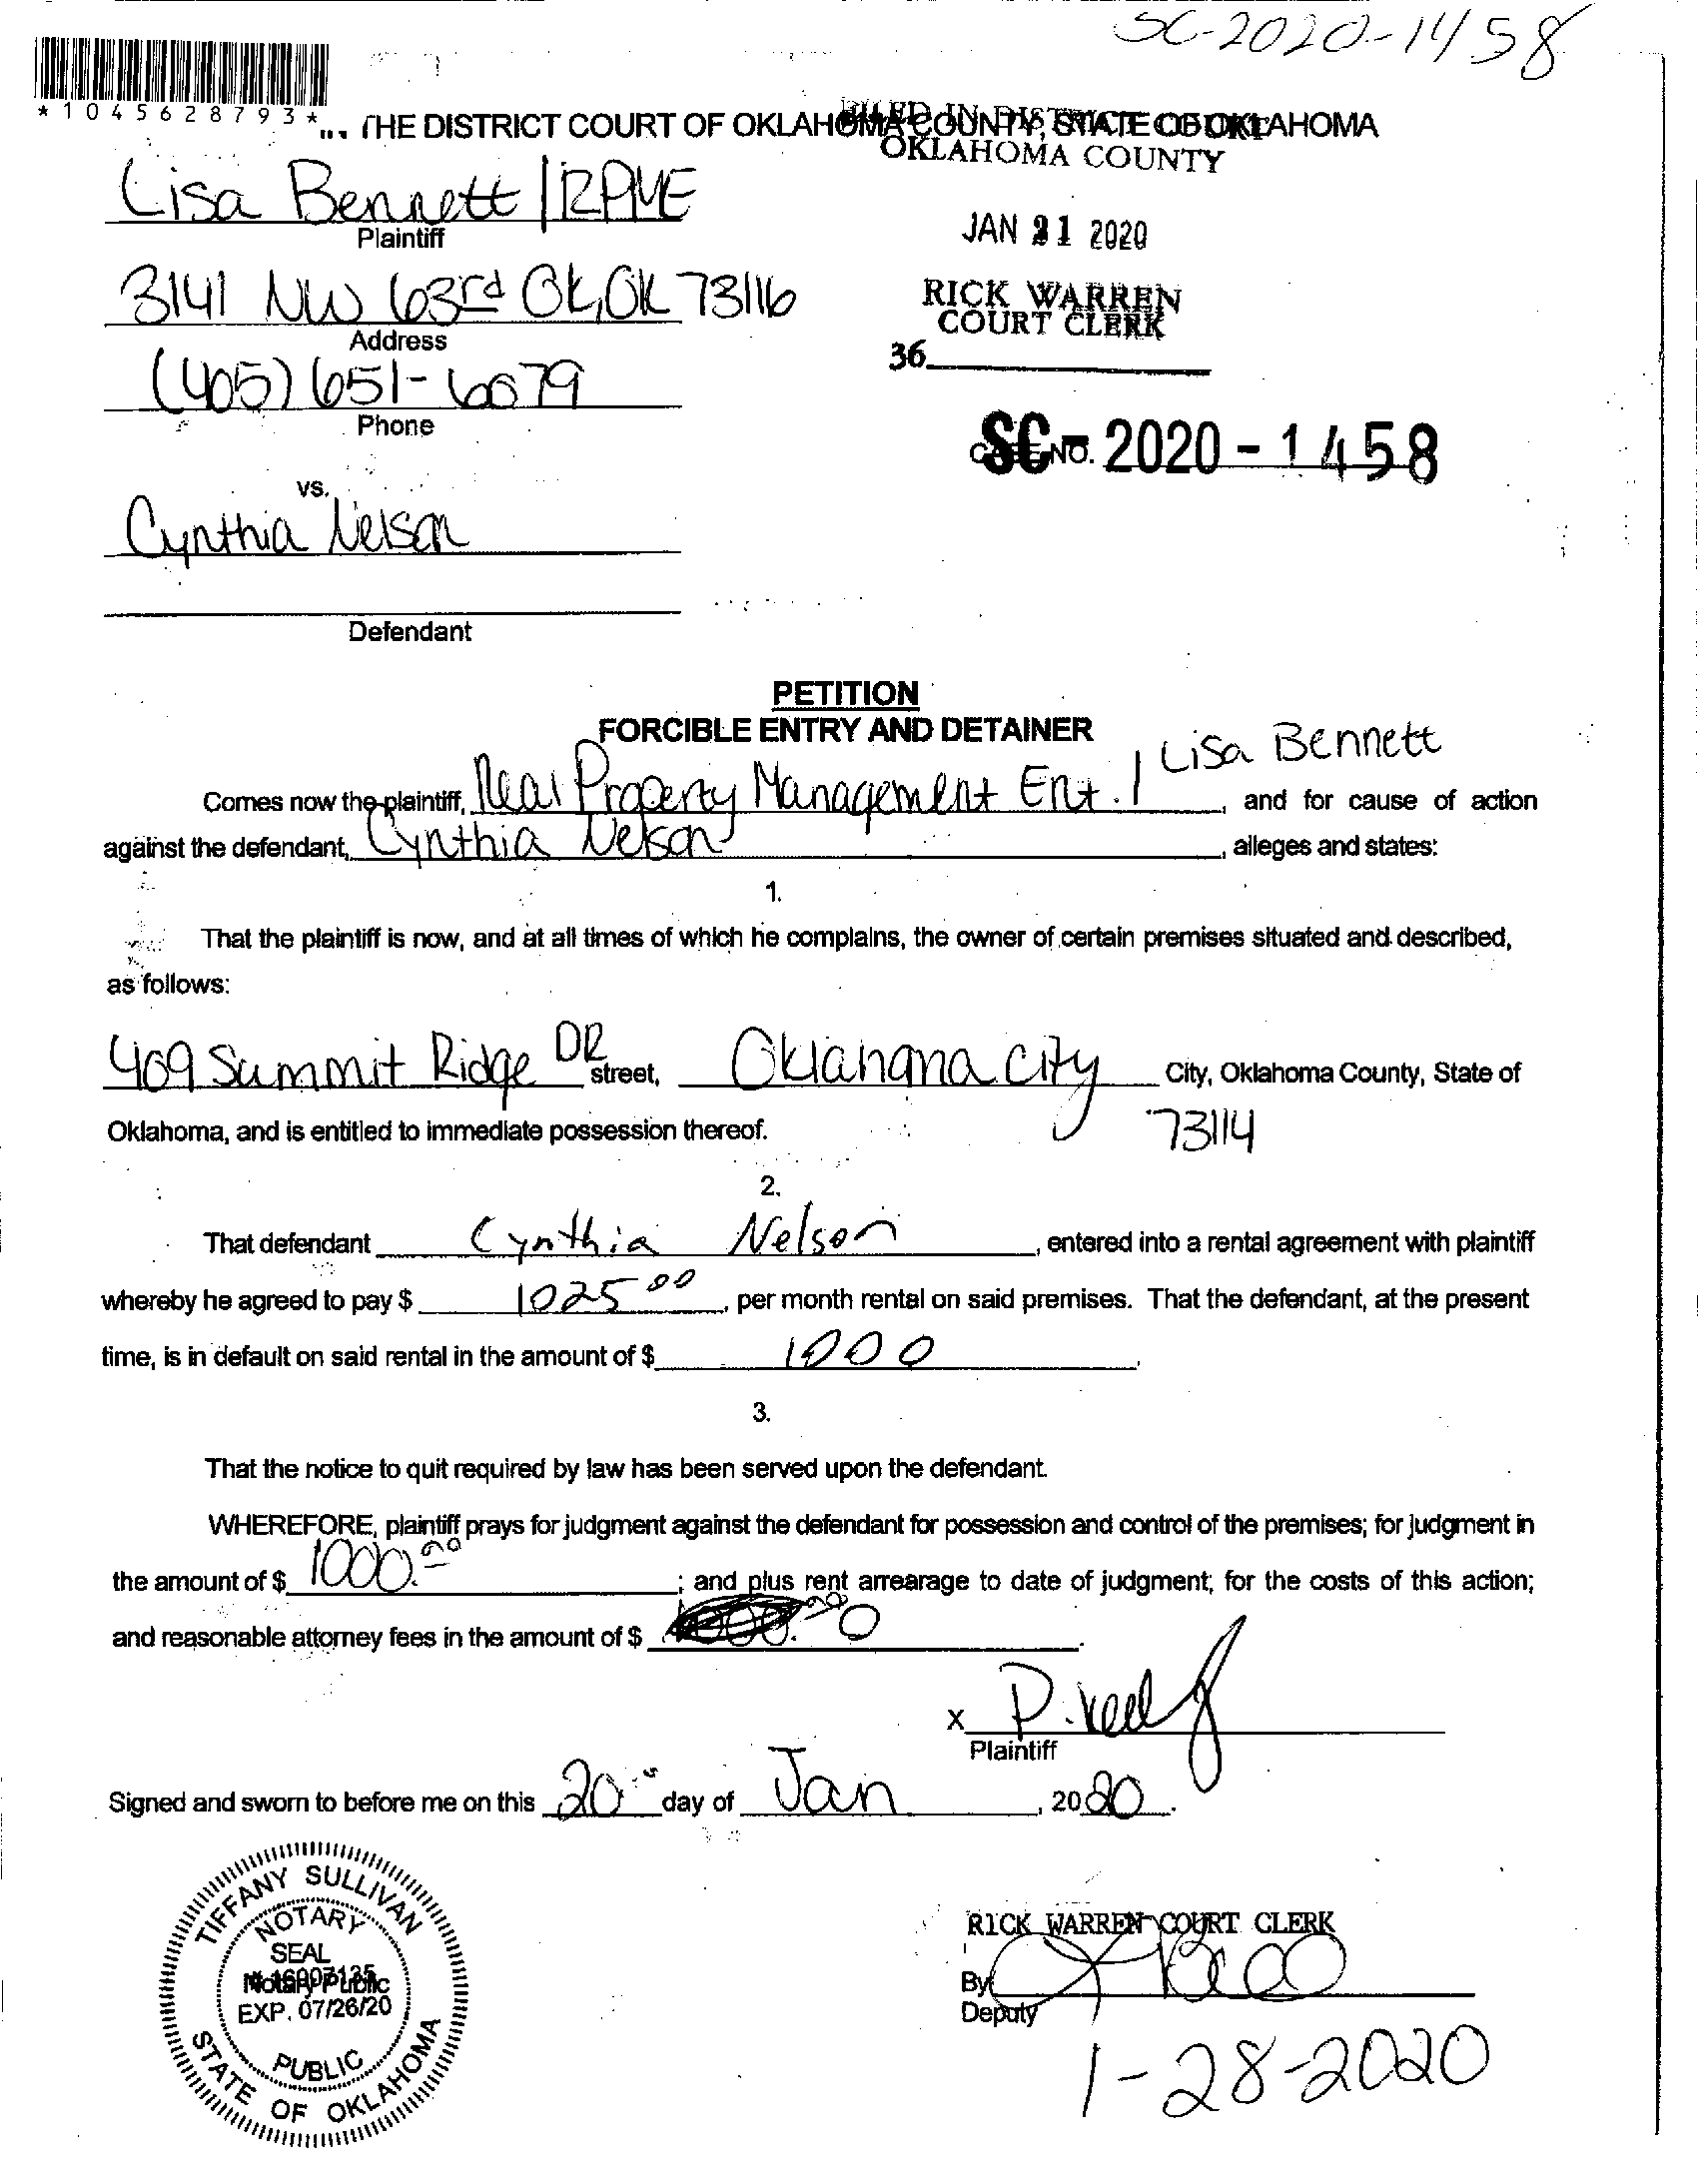 SC-2020-1458
*1045628793*
THE DISTRICT COURT OF OKLAHOMA COUNTY, STATE OF OKLAHOMA
FILED IN DISTRICT COURT
OKLAHOMA COUNTY
Lisa Bennett / RPME
Plaintiff
JAN 21 2020
3141 NW 63rd OK, OK 73116
Address
RICK WARREN
COURT CLERK
36
(405) 651-6679
Phone
CASE NO.
SC-2020-1458
vs.
Cynthia Nelson
Defendant
PETITION
FORCIBLE ENTRY AND DETAINER
Comes now the plaintiff, Real Property Management Ent. / Lisa Bennett, and for cause of action
against the defendant, Cynthia Nelson, alleges and states:
1.
That the plaintiff is now, and at all times of which he complains, the owner of certain premises situated and described,
as follows:
409 Summit Ridge DR street, Oklahoma City City, Oklahoma County, State of
Oklahoma, and is entitled to immediate possession thereof. 73114
2.
That defendant Cynthia Nelson, entered into a rental agreement with plaintiff
whereby he agreed to pay $ 1025 00, per month rental on said premises. That the defendant, at the present
time, is in default on said rental in the amount of $ 1000.
3.
That the notice to quit required by law has been served upon the defendant.
WHEREFORE, plaintiff prays for judgment against the defendant for possession and control of the premises; for judgment in
the amount of $ 1000.00; and plus rent arrearage to date of judgment; for the costs of this action;
and reasonable attorney fees in the amount of $ 0.
X
Plaintiff
Signed and sworn to before me on this 20 day of Jan, 2020.
TIFFANY SULLIVAN
NOTARY
SEAL
# 16007135
Notary Public
EXP. 07/26/20
PUBLIC
STATE OF OKLAHOMA
RICK WARREN COURT CLERK
By
Deputy
1-28-2020